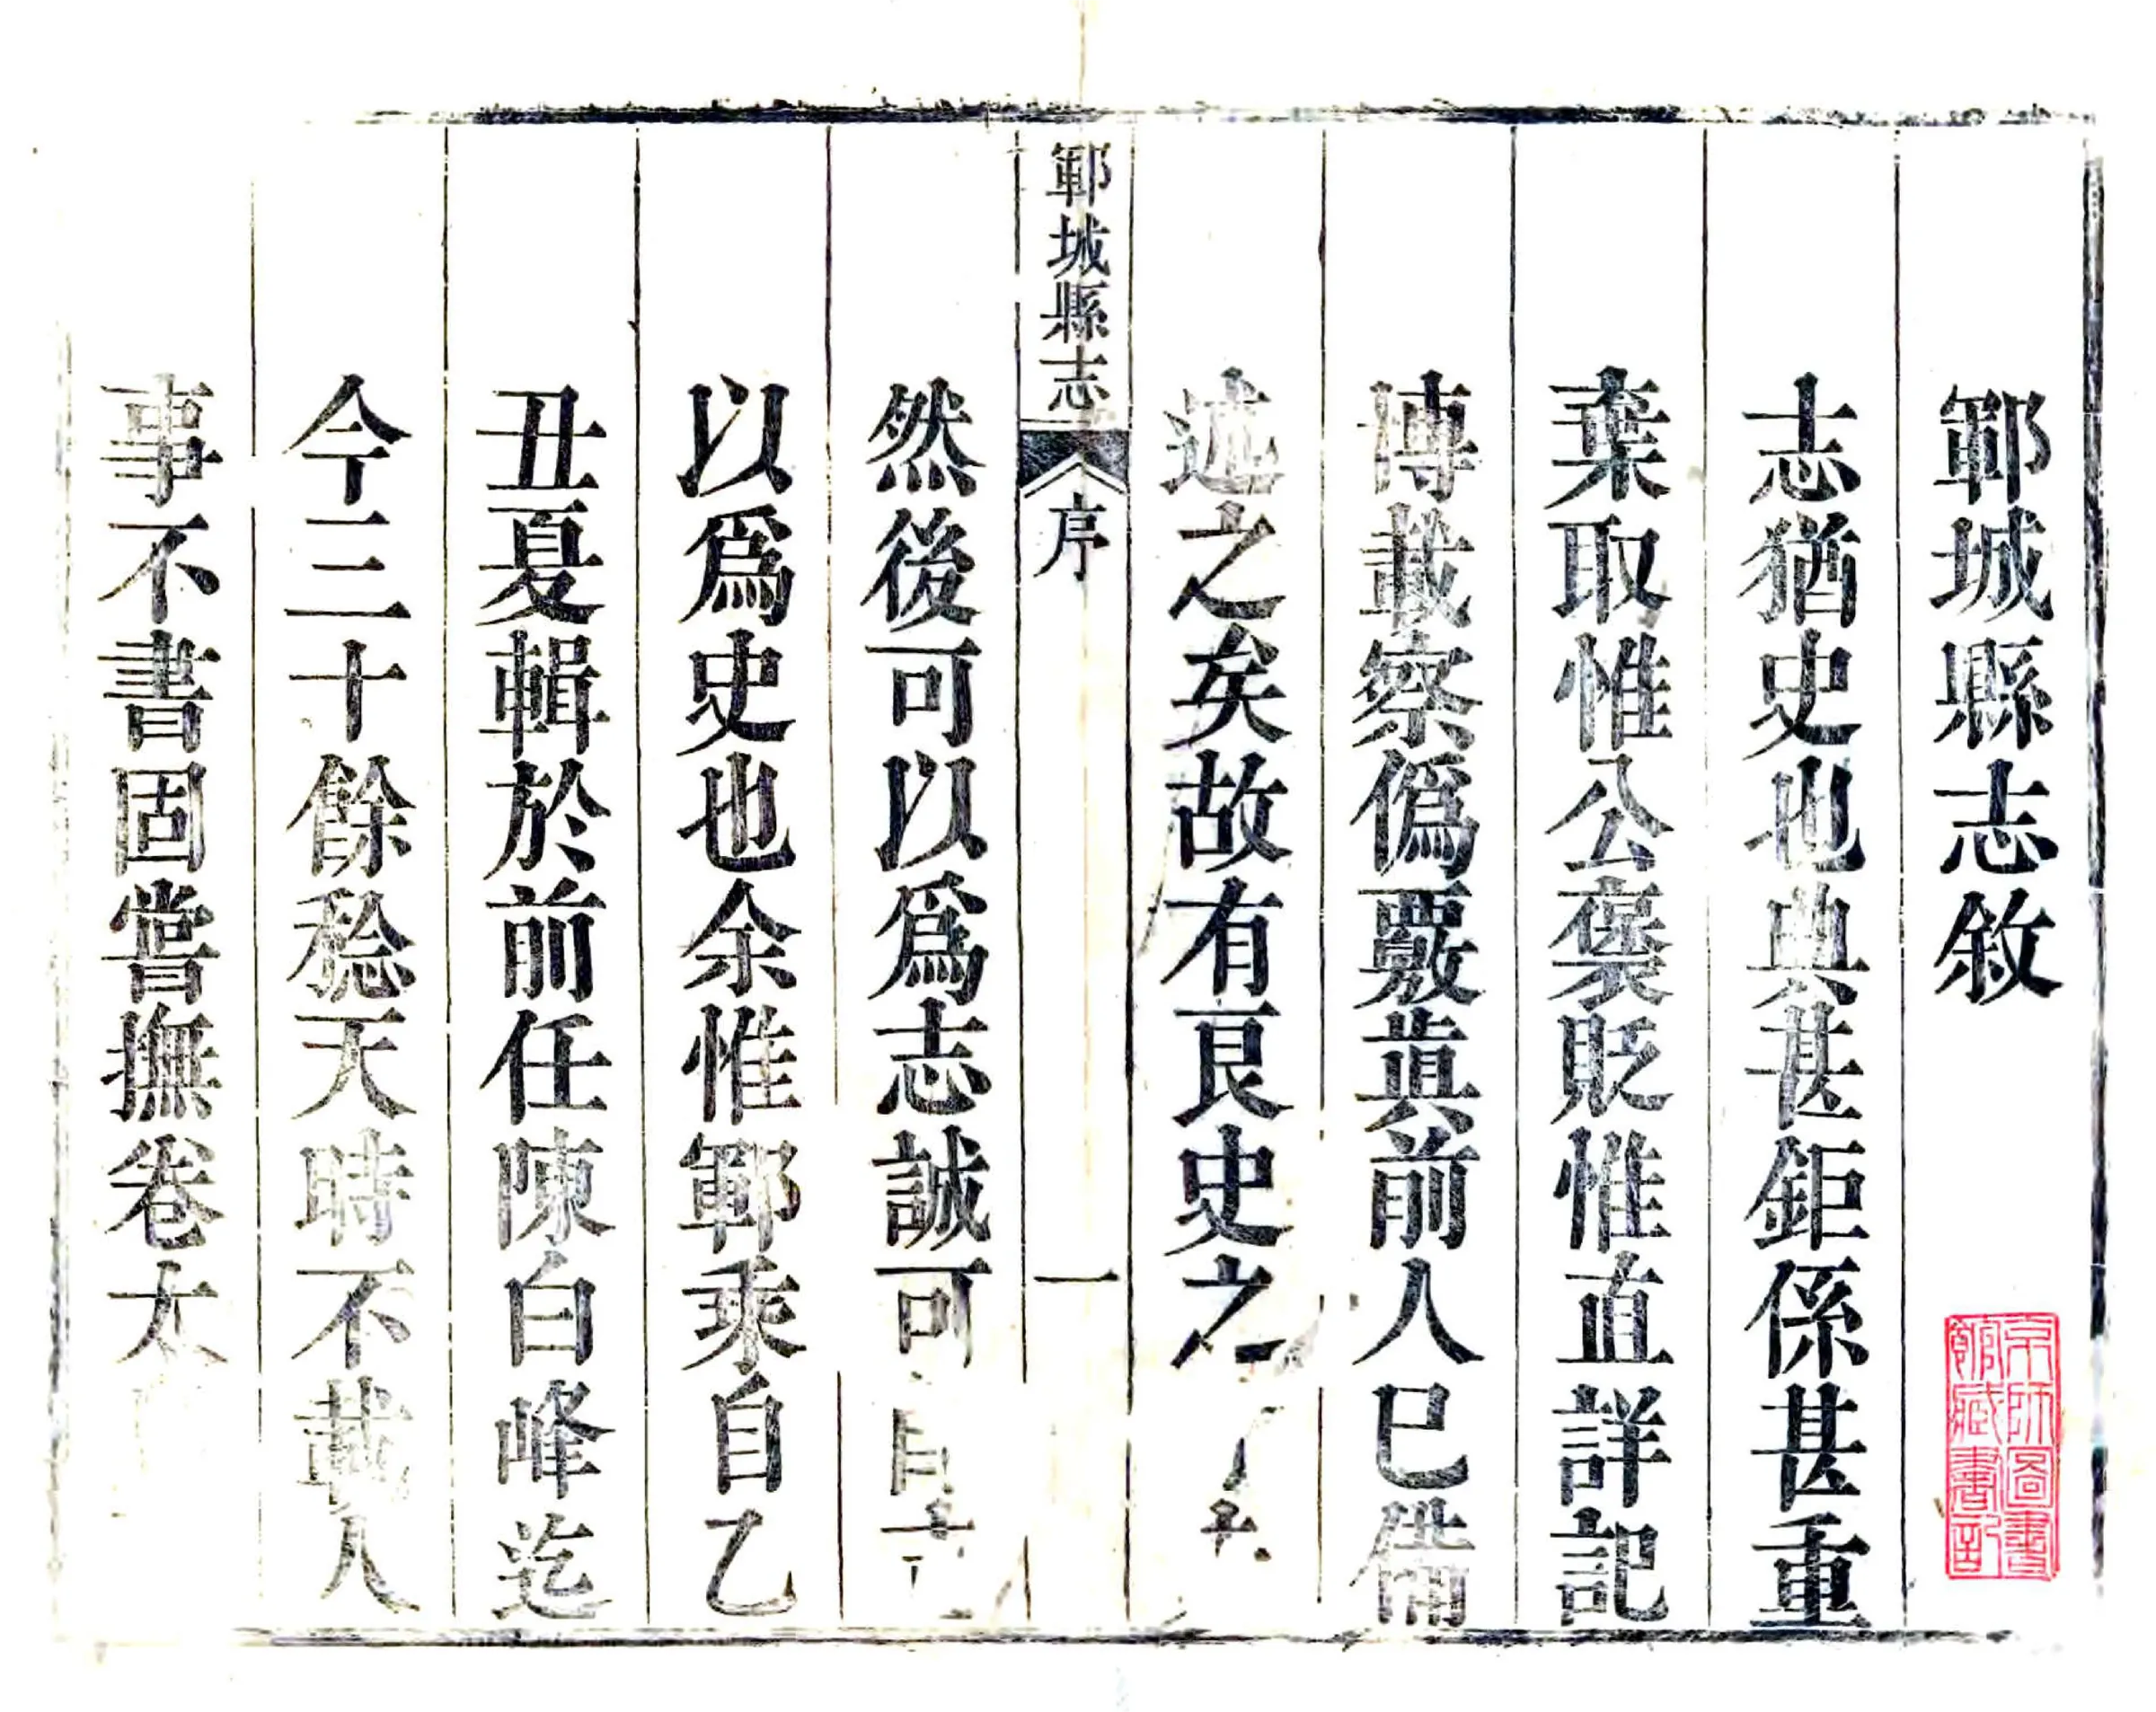 鄆城縣志敘
志猶史也典甚鉅係甚重
棄取惟公褒貶惟直詳記
博載察僞覈眞前人已備
述之矣故有良史之
鄆城縣志
序
一
然後可以爲志誠可
以爲史也余惟鄆乘自乙
丑夏輯於前任陳白峰迄
今三十餘稔天時不載人
事不書固嘗撫卷太
京師圖書
館藏書記